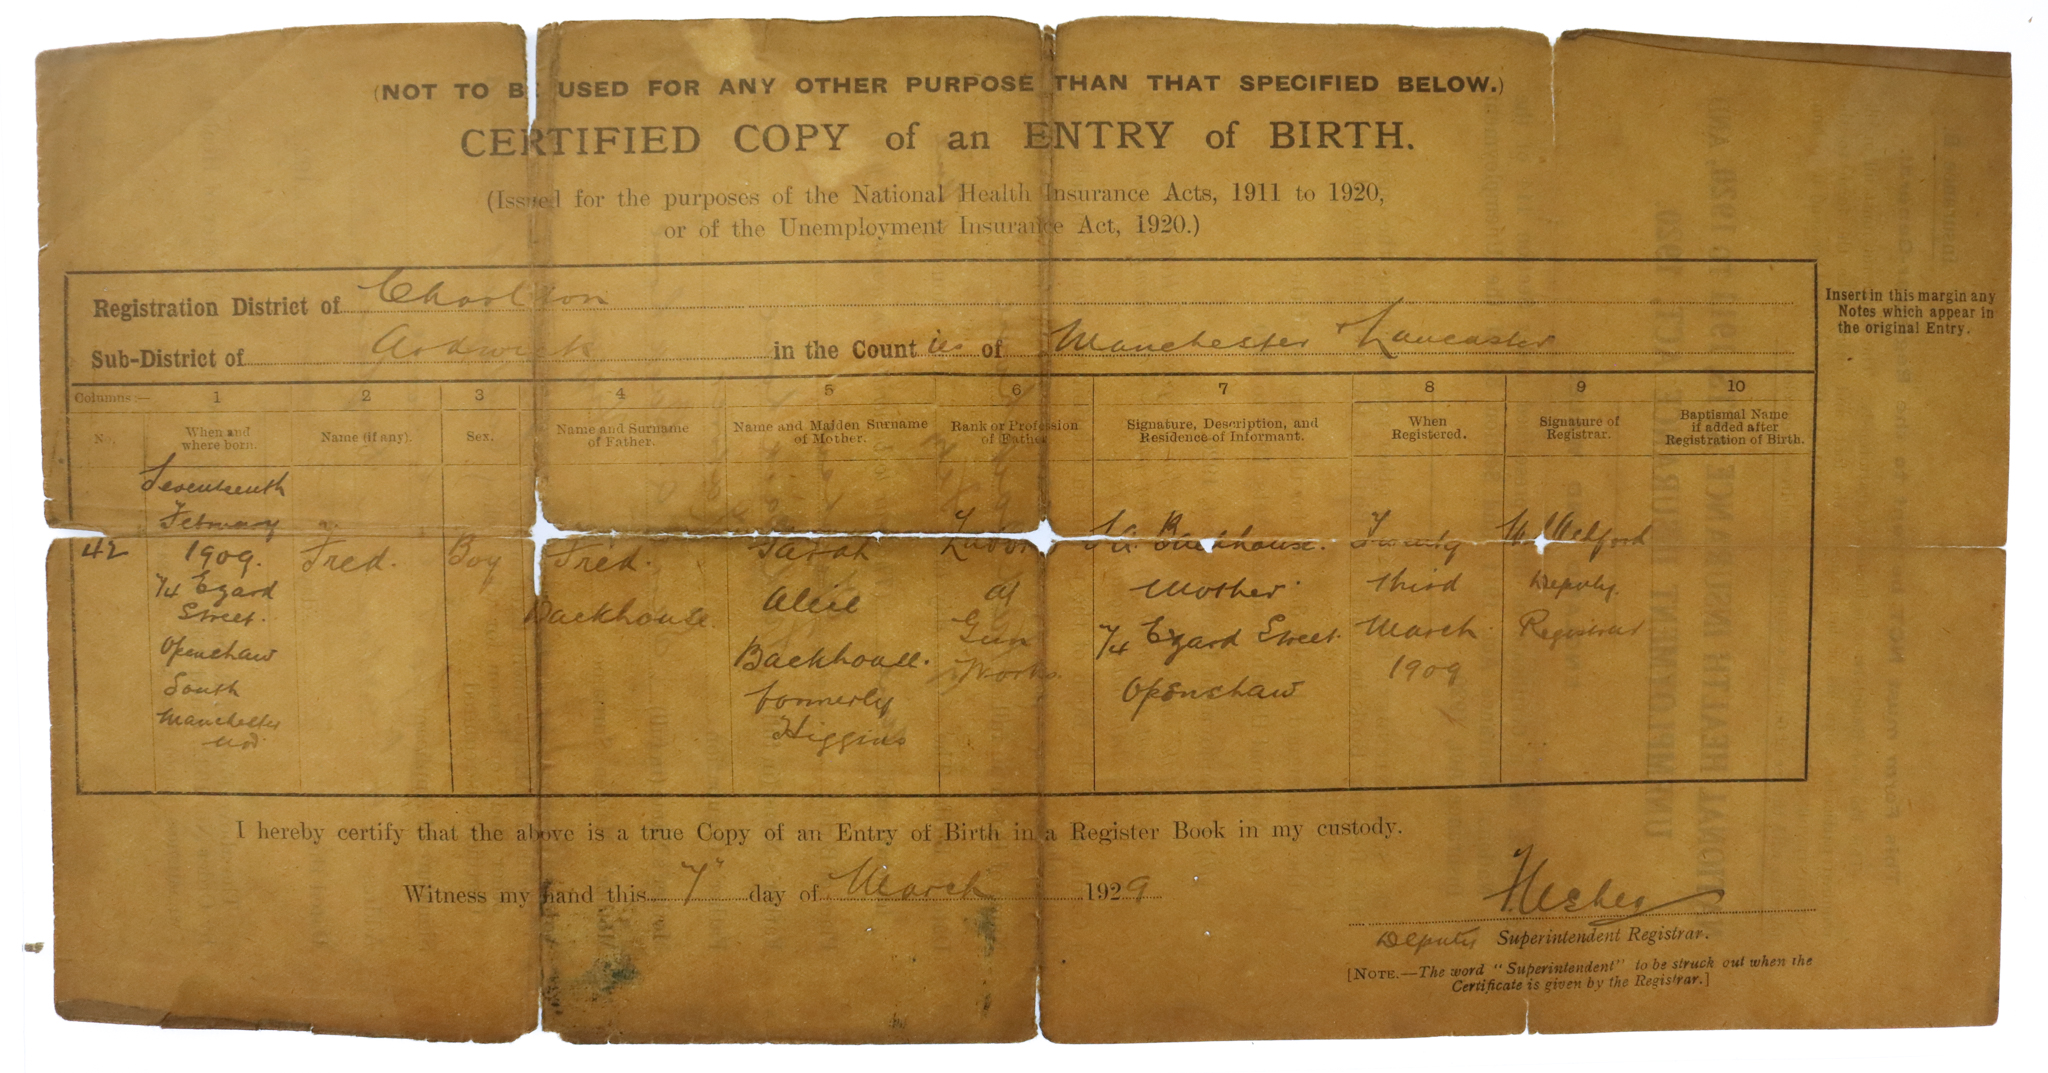 (NOT TO BE USED FOR ANY OTHER PURPOSE THAN THAT SPECIFIED BELOW.)
CERTIFIED COPY of an ENTRY of BIRTH.
(Issued for the purposes of the National Health Insurance Acts, 1911 to 1920,
or of the Unemployment Insurance Act, 1920.)
Registration District of Chorlton
Sub-District of Ardwick in the Counties of Manchester & Lancaster
Insert in this margin any
Notes which appear in
the original Entry.
Columns:— 1 2 3 4 5 6 7 8 9 10
No.
When and
where born.
Name (if any).
Sex.
Name and Surname
of Father.
Name and Maiden Surname
of Mother.
Rank or Profession
of Father
Signature, Description, and
Residence of Informant.
When
Registered.
Signature of
Registrar.
Baptismal Name
if added after
Registration of Birth.
42
Seventeenth
February
1909.
74 Egard
Street.
Openshaw
South
Manchester
Fred.
Boy
Fred.
Backhouse
Sarah
Alice
Backhouse.
formerly
Higgins
at
Gun
Works.
S.A. Backhouse.
Mother
74 Egard Street.
Openshaw
Twenty
third
March
1909
Ashford
Deputy
Registrar
I hereby certify that the above is a true Copy of an Entry of Birth in a Register Book in my custody.
Witness my hand this 7" day of March 1929
Deputy Superintendent Registrar.
[NOTE.—The word "Superintendent" to be struck out when the
Certificate is given by the Registrar.]